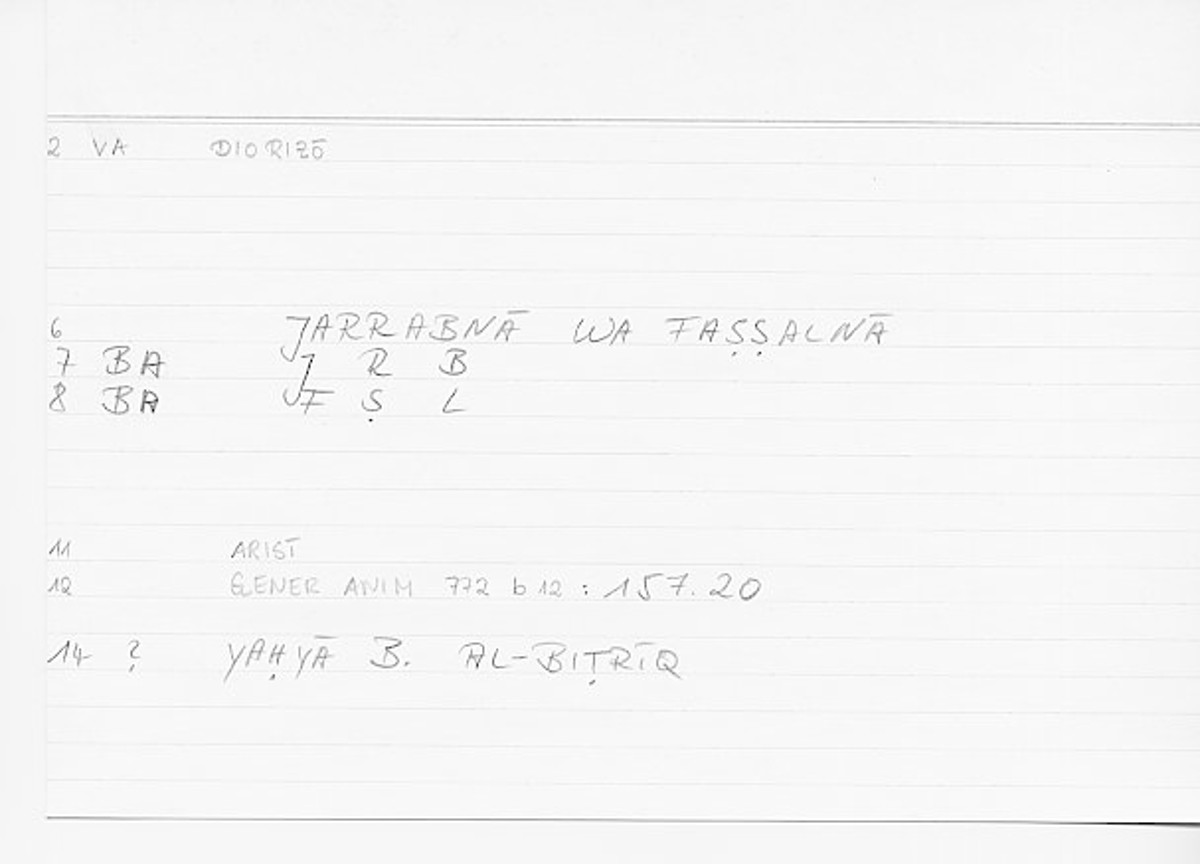 2 VA DIORIZŌ
6 JARRABNĀ WA FAṢṢALNĀ
7 BA J R B
8 BA F Ṣ L
11 ARIST
12 GENER ANIM 772 b 12 : 157.20
14 ? YAḤYĀ B. AL-BIṬRĪQ